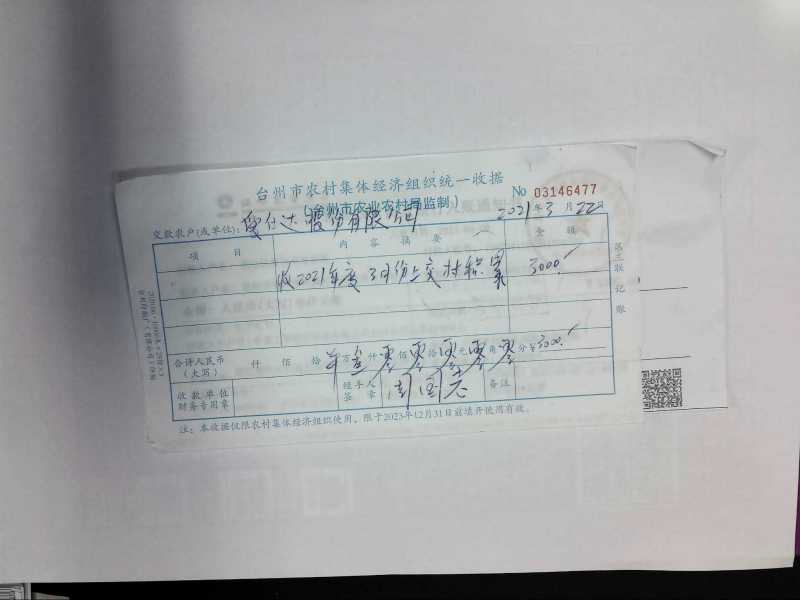 台州市农村集体经济组织统一收据
(台州市农业农村局监制)
No 03146477
交款农户(或单位): 爱仕达股份有限公司 2021年3月22日
项 目 内 容 摘 要 金 额
收2021年度3月份上交村积累 3000.
合计人民币(大写) 仟 佰 拾 万叁仟零佰零拾零元零角零分 ¥3000.
收款单位财务专用章 经手人签章 备注
注:本收据仅限农村集体经济组织使用,限于2023年12月31日前填开使用有效。
第三联 记账